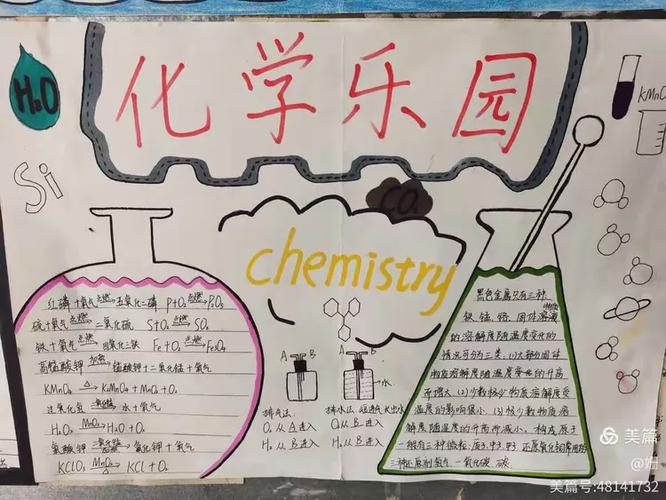 化学乐园
H₂O
Si
KMnO
CO₂
chemistry
红磷+氧气 点燃→ 五氧化二磷 P+O₂ 点燃→ P₂O₅
硫+氧气 点燃→ 二氧化硫 S+O₂ 点燃→ SO₂
铁+氧气 点燃→ 四氧化三铁 Fe+O₂ 点燃→ Fe₃O₄
高锰酸钾 加热→ 锰酸钾+二氧化锰+氧气
KMnO₄ △→ K₂MnO₄+MnO₂+O₂
过氧化氢 → 水+氧气
H₂O₂ MnO₂→ H₂O+O₂
氯酸钾 二氧化锰→ 氯化钾+氧气
KClO₃ MnO₂→ KCl+O₂
A B
A B
水
排气法:
O₂从A进入
H₂从B进入
排水法: 短进气长出水
O₂从B进入
H₂从B进入
黑色金属只有三种
铁、锰、铬。固体溶液
的溶解度随温度变化的
情况可分为三类:(1)大部分固体
物质溶解度随温度变化的升高
而增大。(2)少数物质溶解度受
温度的影响很小。(3)极少数物质溶
解度随温度的升高而减小。构成原子
一般有三种微粒:质子,中子,
三种还原剂氢气,一氧化碳,碳。
美篇
@姗
美篇号:48141732